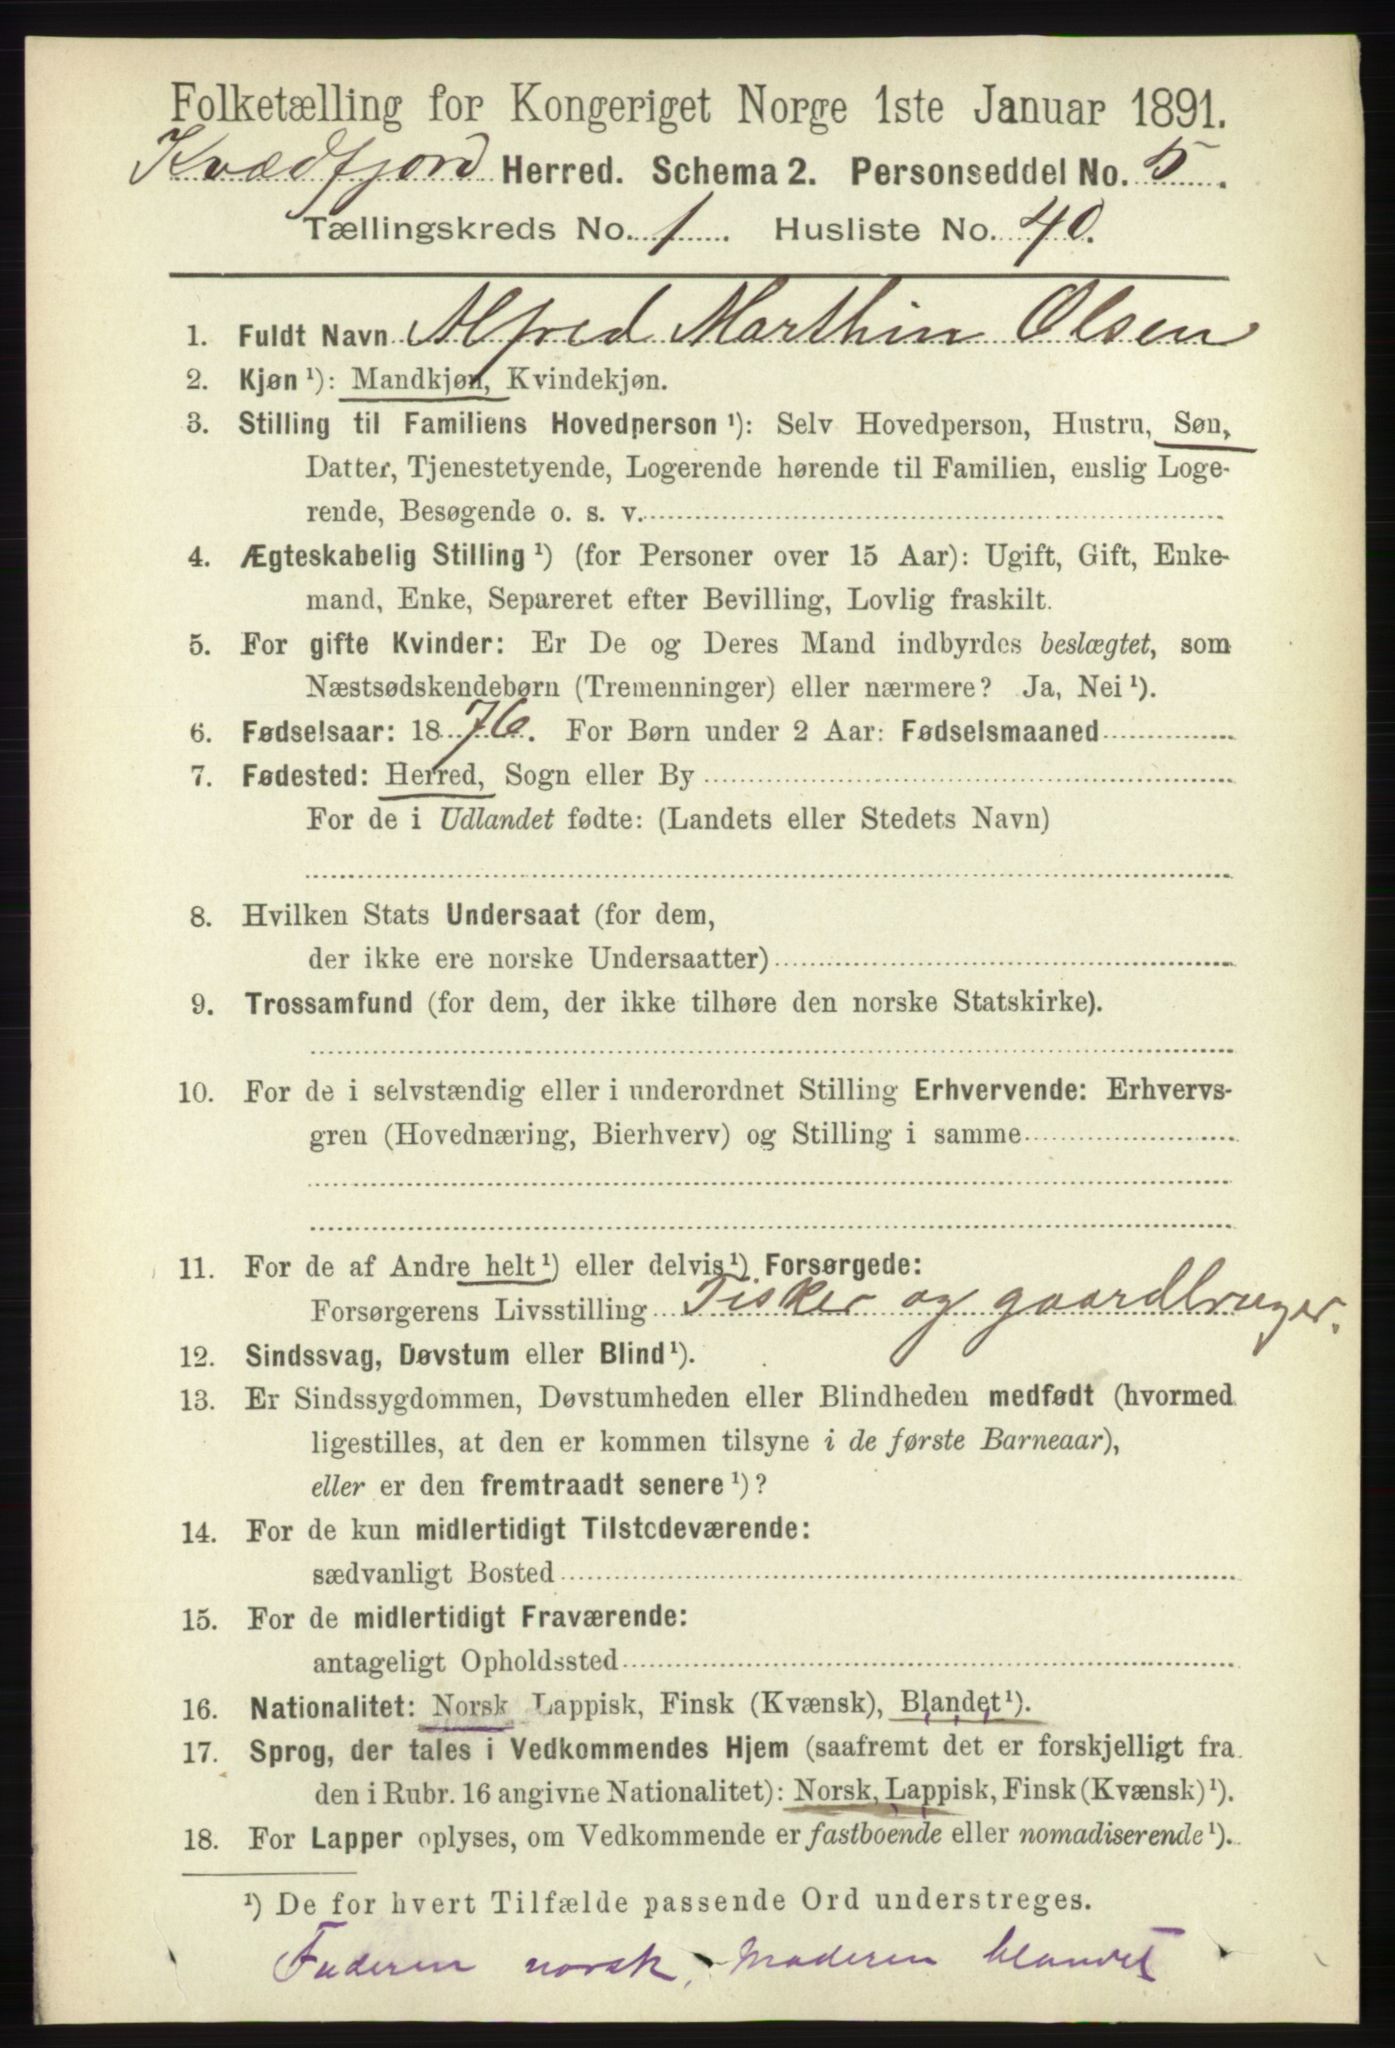 Folketælling for Kongeriget Norge 1ste Januar 1891.
Kvædfjord Herred. Schema 2. Personseddel No. 5.
Tællingskreds No. 1. Husliste No. 40.
1. Fuldt Navn Alfred Marthin Olsen
2. Kjøn ¹): Mandkjøn, Kvindekjøn.
3. Stilling til Familiens Hovedperson ¹): Selv Hovedperson, Hustru, Søn,
Datter, Tjenestetyende, Logerende hørende til Familien, enslig Loge-
rende, Besøgende o. s. v.
4. Ægteskabelig Stilling ¹) (for Personer over 15 Aar): Ugift, Gift, Enke-
mand, Enke, Separeret efter Bevilling, Lovlig fraskilt.
5. For gifte Kvinder: Er De og Deres Mand indbyrdes beslægtet, som
Næstsødskendebørn (Tremenninger) eller nærmere? Ja, Nei ¹).
6. Fødselsaar: 1876. For Børn under 2 Aar: Fødselsmaaned
7. Fødested: Herred, Sogn eller By
For de i Udlandet fødte: (Landets eller Stedets Navn)
8. Hvilken Stats Undersaat (for dem,
der ikke ere norske Undersaatter)
9. Trossamfund (for dem, der ikke tilhøre den norske Statskirke).
10. For de i selvstændig eller i underordnet Stilling Erhvervende: Erhvervs-
gren (Hovednæring, Bierhverv) og Stilling i samme
11. For de af Andre helt ¹) eller delvis ¹) Forsørgede:
Forsørgerens Livsstilling Fisker og gaardbruger.
12. Sindssvag, Døvstum eller Blind ¹).
13. Er Sindssygdommen, Døvstumheden eller Blindheden medfødt (hvormed
ligestilles, at den er kommen tilsyne i de første Barneaar),
eller er den fremtraadt senere ¹)?
14. For de kun midlertidigt Tilstedeværende:
sædvanligt Bosted
15. For de midlertidigt Fraværende:
antageligt Opholdssted
16. Nationalitet: Norsk Lappisk, Finsk (Kvænsk), Blandet ¹).
17. Sprog, der tales i Vedkommendes Hjem (saafremt det er forskjelligt fra
den i Rubr. 16 angivne Nationalitet): Norsk, Lappisk, Finsk (Kvænsk) ¹).
18. For Lapper oplyses, om Vedkommende er fastboende eller nomadiserende ¹).
¹) De for hvert Tilfælde passende Ord understreges.
Faderen norsk, Moderen blandet